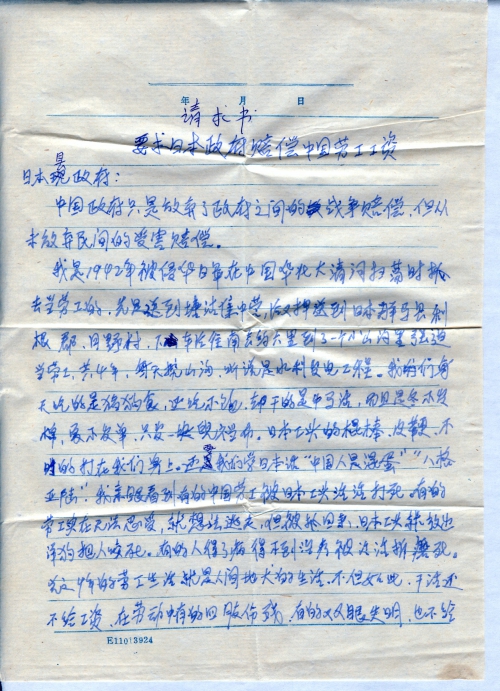 年 月 日
请求书
要求日本政府赔偿中国劳工工资
日本县现政府：
中国政府只是放弃了政府之间的战争赔偿，但从
未放弃民间的受害赔偿。
我是1942年被侵华日军在中国华北大清河扫荡时抓
去当劳工的，先是送到塘沽集中营，后又押送到日本群马县利
根郡，月野村，下车后往南走约六里到了一个小山沟里强迫
当劳工，共4年，每天挖山沟，听说是水利发电工程。我们每
天吃的是猪狗食，还吃不饱，却干的是牛马活，而且是冬不发
棉，夏不发单，只发一块兜当布。日本工头的棍棒、皮鞭，不
时的打在我们身上。还骂我们是日本话“中国人是混蛋”“八格
亚陆”我亲眼看到有的中国劳工被日本工头活活打死，有的
劳工实在无法忍受，就想法逃走，但被抓回来，日本工头就放出
洋狗把人咬死。有的人得了病得不到治疗被活活折磨死。
这4年的劳工生活就是人间地狱的生活，不但如此，干活还
不给工资，在劳动中有的四肢伤残，有的双眼失明，也不给
E11013924